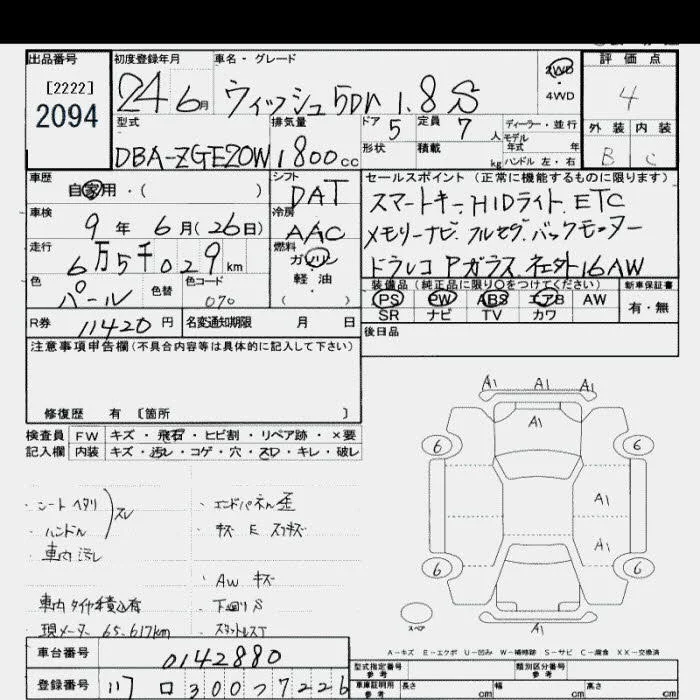 出品番号 初度登録年月 車名・グレード 評価点
[2222]
2094
24 6月 ウィッシュ 5Dr 1.8S 2WD 4WD 4
型式 排気量 ドア 5 定員 7人 ディーラー・並行 外装 内装
モデル年式 年
DBA-ZGE20W 1800cc 形状 積載 kg ハンドル 左・右 B C
車歴 シフト セールスポイント(正常に機能するものに限ります)
自家用・( ) DAT スマートキー.HIDライト.ETC
車検 冷房
9年 6月(26日) AAC メモリーナビ.フルセグ.バックモニター
走行 燃料
6万5千029km ガソリン ドラレコ Pガラス.社外16AW
色 色替 色コード 軽油 装備品(純正品に限り○をつけてください) 新車保証書
パール 070 ( ・ ) PS PW ABS エアB AW 有・無
SR ナビ TV カワ
R券 11420円 名変通知期限 月 日 後日品
注意事項申告欄(不具合内容等は具体的に記入して下さい)
修復歴 有 〔箇所 〕
検査員 FW キズ・飛石・ヒビ割・リペア跡・×要
記入欄 内装 キズ・汚レ・コゲ・穴・スレ・キレ・破レ
A1 A1 A1
A1
6 6
A1
A1
6 6
A1
スペア
・シート ヘタリ スレ
・ハンドル
・車内 汚レ
・エンドパネル歪
・キズ E スリキズ
・AW キズ
車内 タイヤ積込有 ・下回りS
現メーター 65.617km ・スタッドレスT
A-キズ E-エクボ U-凹み W-補修跡 S-サビ C-腐食 XX-交換済
車台番号 0142880 型式指定番号 参考 類別区分番号 参考
登録番号 300 つ 7226 車庫証明用 参考 長さ cm 幅 cm 高さ cm